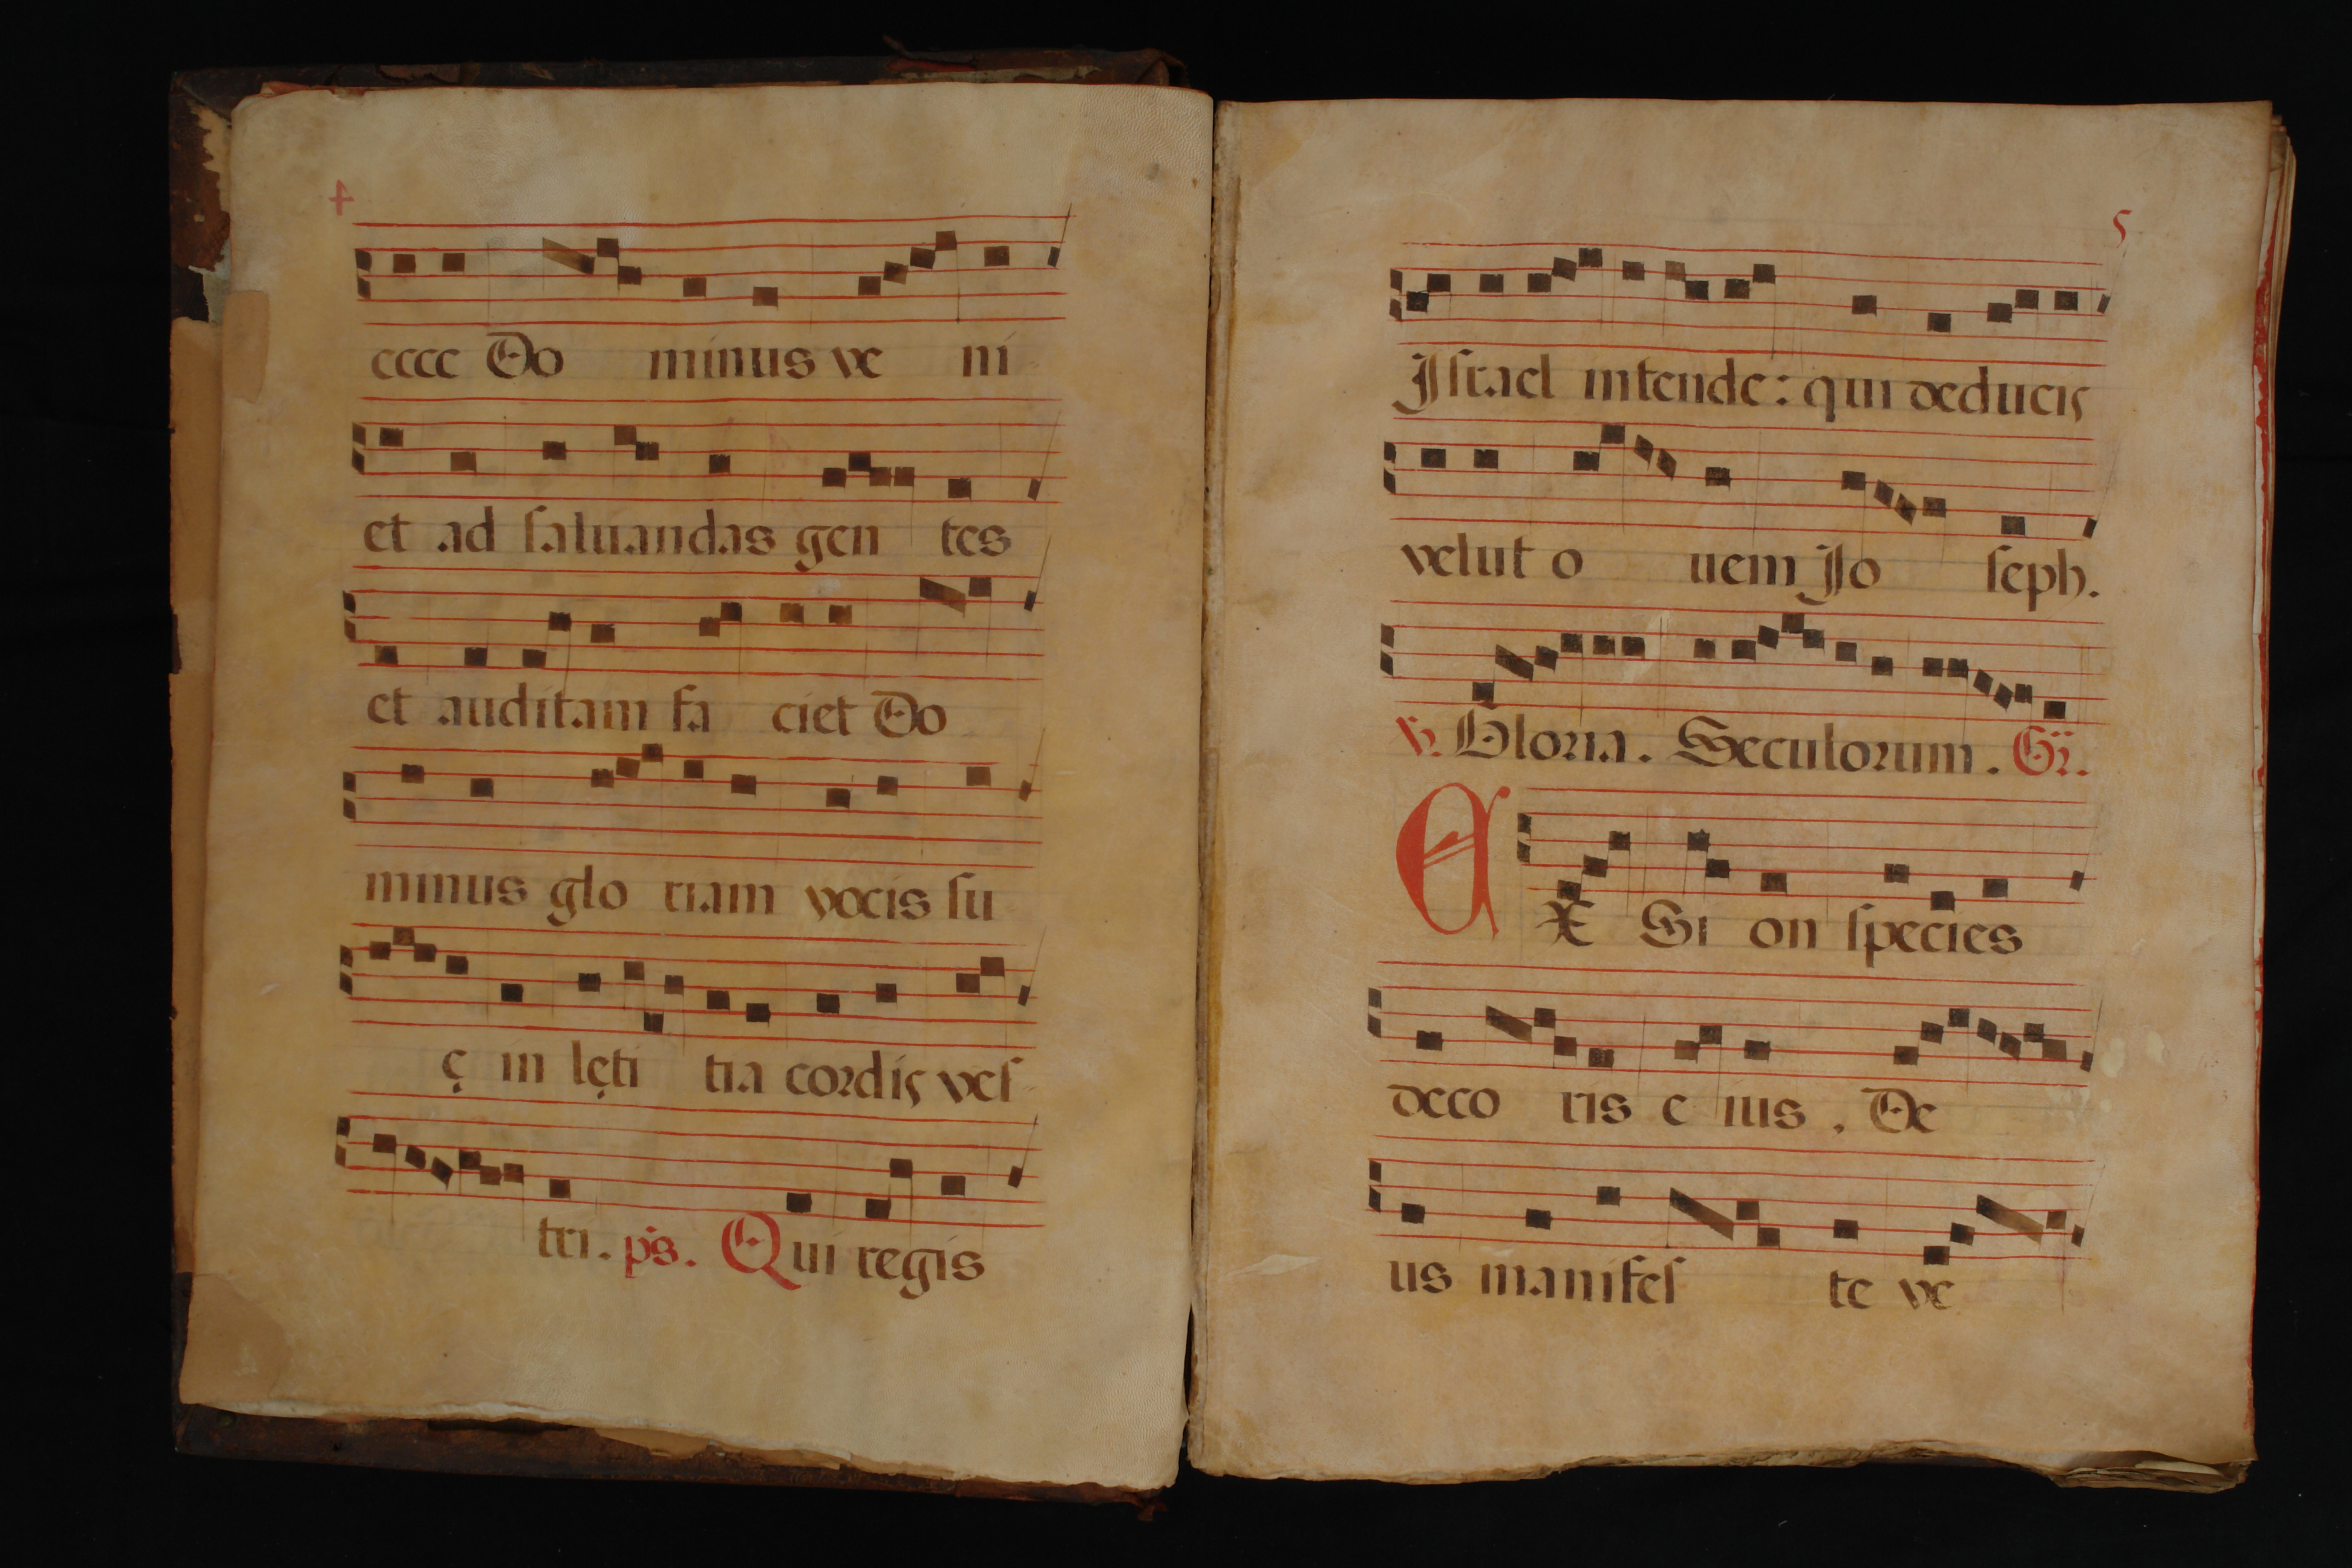 4
ecce Do minus ve ni
et ad ſaluandas gen tes
et auditam fa ciet Do
minus glo riam vocis ſu
ę in lęti tia cordis veſ
tri. ps. Qui regis
5
Iſrael intende: qui deducis
velut o uem Jo ſeph.
℣. Gloria. Seculorum. Gr.
EX Si on ſpecies
deco ris e ius. De
us manifeſ te ve